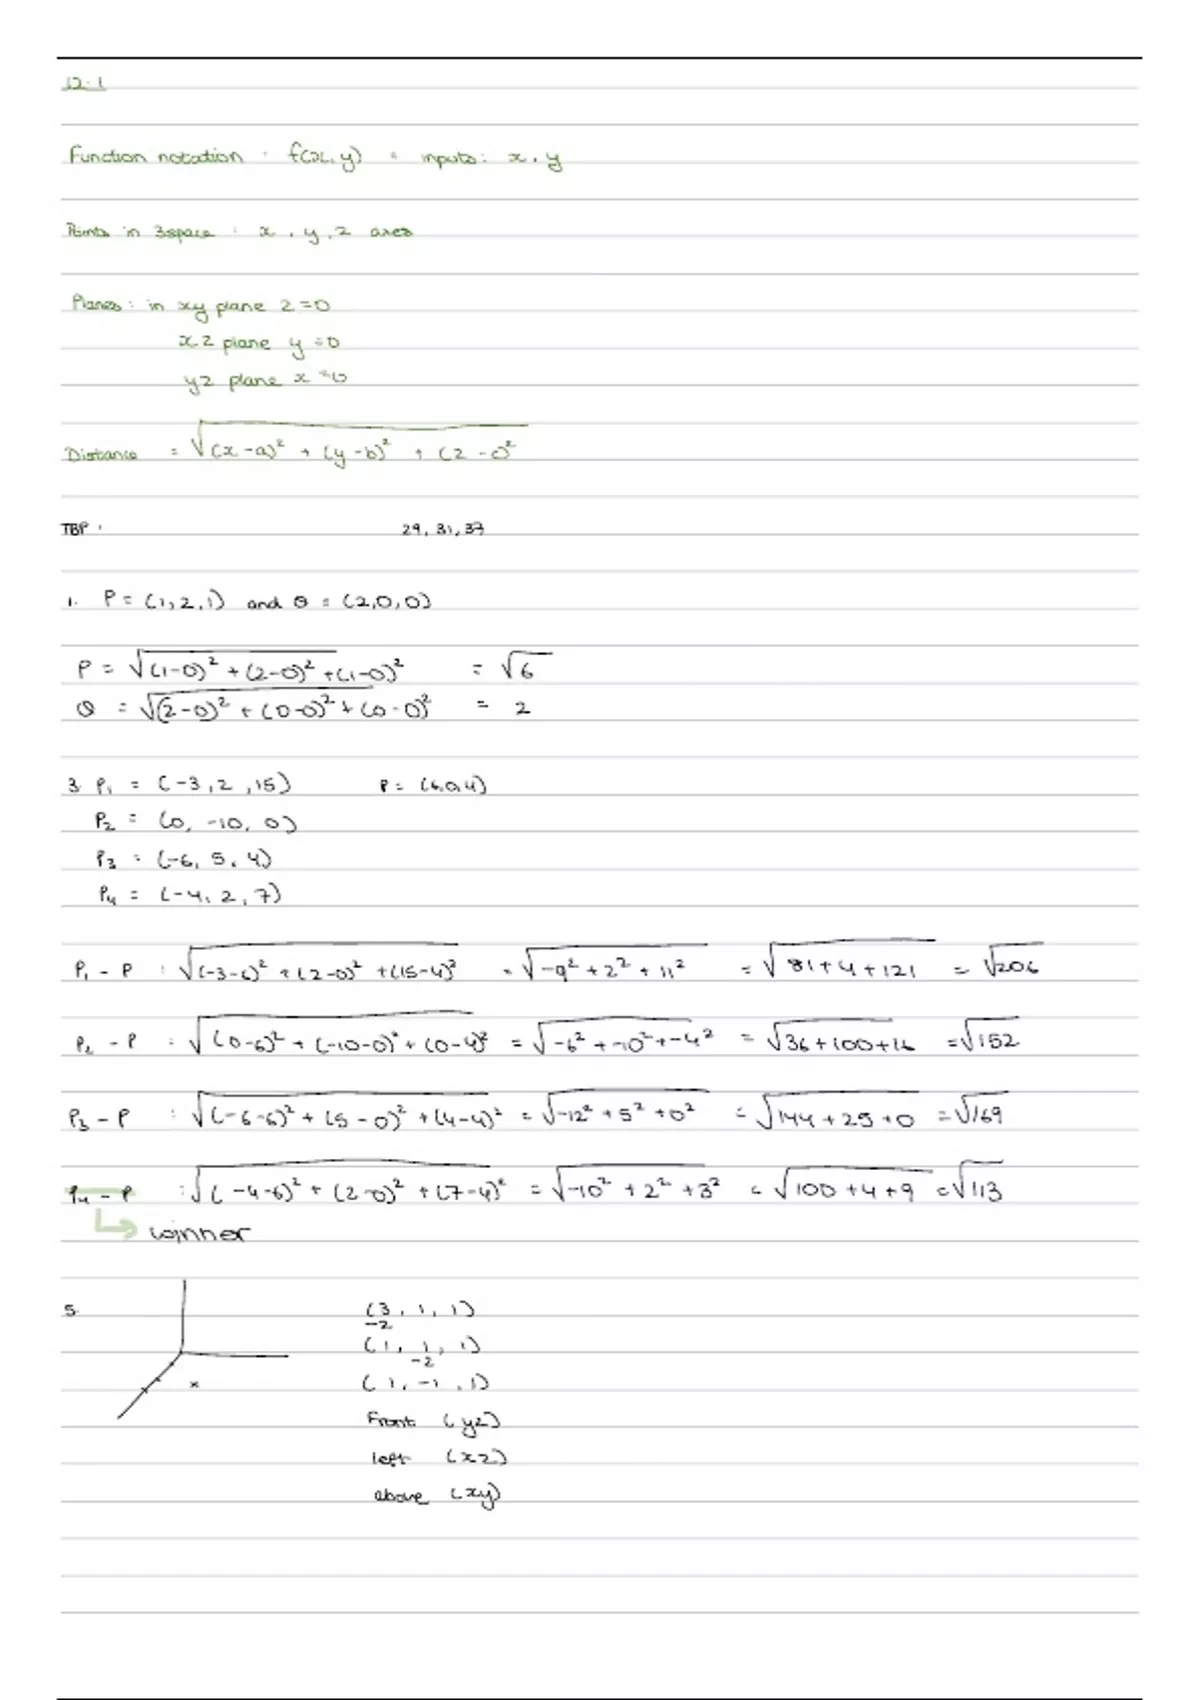 12.1
Function notation : f(x,y) = inputs: x, y
Points in 3space : x, y, z axes
Planes: in xy plane z=0
xz plane y=0
yz plane x=0
Distance = √(x-a)² + (y-b)² + (z-c)²
TBP: 29, 31, 37
1. P = (1,2,1) and Q = (2,0,0)
P = √(1-0)² + (2-0)² + (1-0)² = √6
Q = √(2-0)² + (0-0)² + (0-0)² = 2
3. P₁ = (-3,2,15) P = (6,0,4)
P₂ = (0, -10, 0)
P₃ = (-6, 5, 4)
P₄ = (-4, 2, 7)
P₁ - P : √(-3-6)² + (2-0)² + (15-4)² = √-9² + 2² + 11² = √81+4+121 = √206
P₂ - P : √(0-6)² + (-10-0)² + (0-4)² = √-6² + -10² + -4² = √36+100+16 = √152
P₃ - P : √(-6-6)² + (5-0)² + (4-4)² = √-12² + 5² + 0² = √144+25+0 = √169
P₄ - P : √(-4-6)² + (2-0)² + (7-4)² = √-10² + 2² + 3² = √100+4+9 = √113
winner
5. (3, 1, 1)
-2
(1, 1, 1)
-2
(1, -1, 1)
Front (yz)
left (xz)
above (xy)